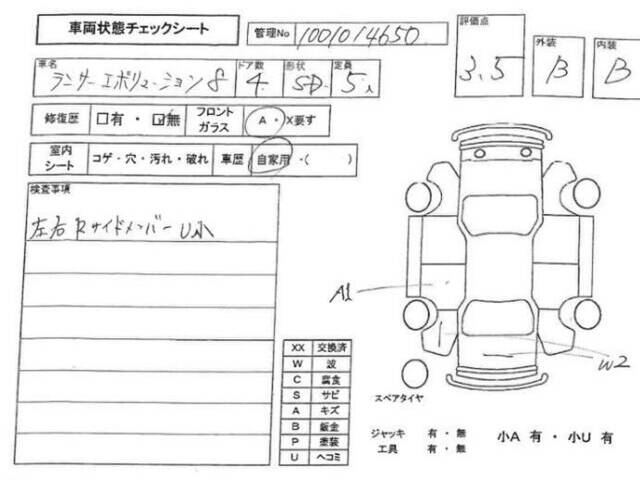 車両状態チェックシート
管理No 1001014650
評価点 3.5
外装 B
内装 B
車名 ランサーエボリューション8
ドア数 4
形状 SD
定員 5人
修復歴 □有・☑無
フロントガラス A・X要す
室内シート コゲ・穴・汚れ・破れ
車歴 自家用・( )
検査事項
左右Rサイドメンバー U小
A1
W2
XX 交換済
W 波
C 腐食
S サビ
A キズ
B 鈑金
P 塗装
U ヘコミ
スペアタイヤ
ジャッキ 有・無
工具 有・無
小A 有・小U 有